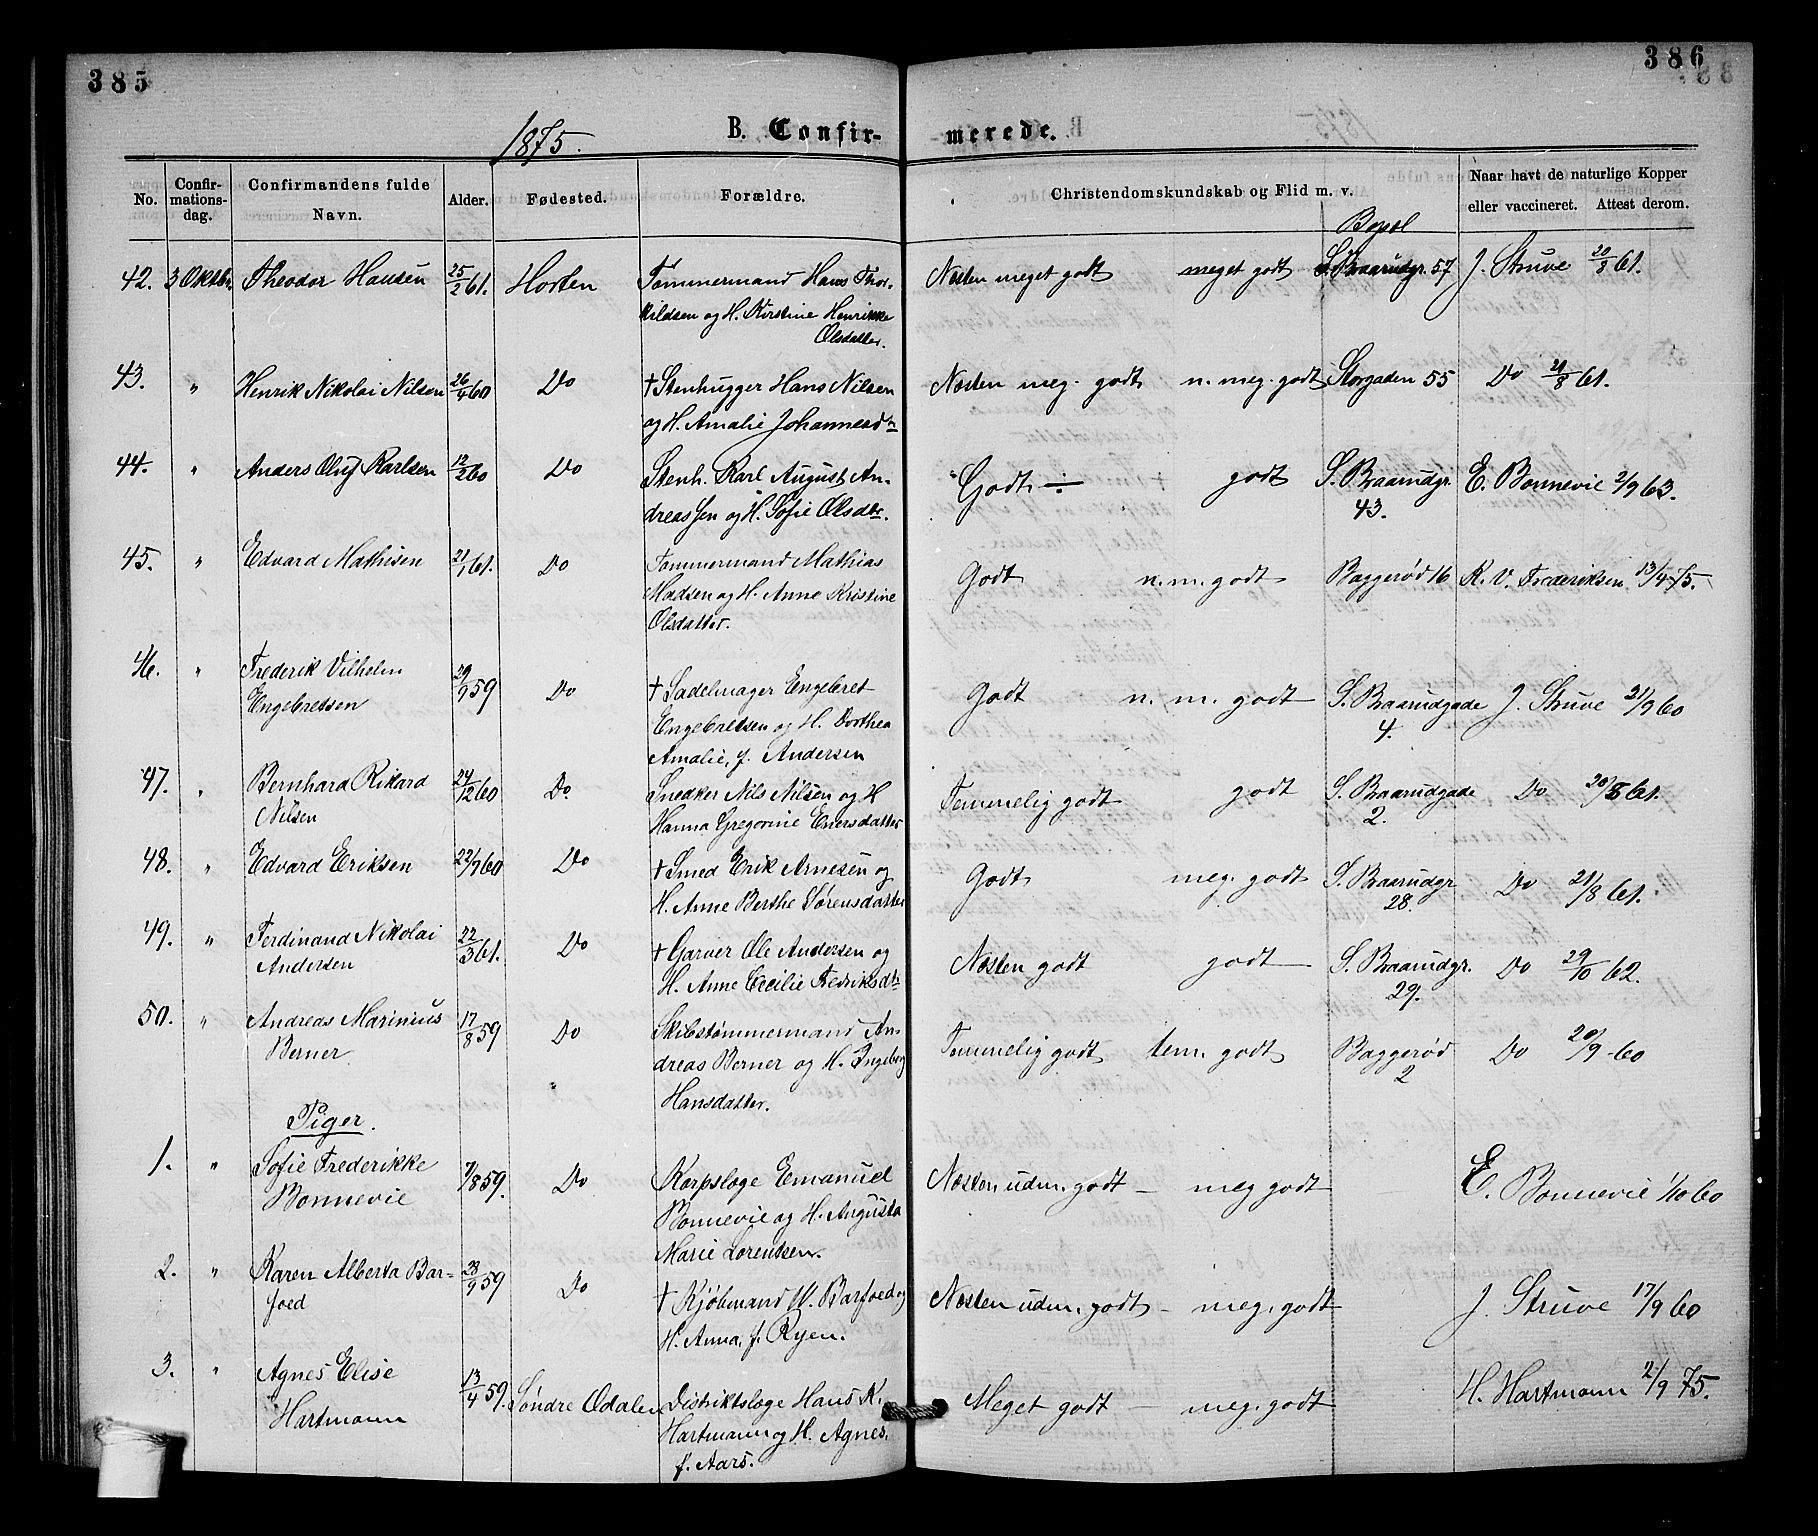 385
386
1875.
B. Confir-
merede.
No.
Confir-
mations-
dag.
Confirmandens fulde
Navn.
Alder.
Fødested.
Forældre.
Christendomskundskab og Flid m. v.
Bopæl
Naar havt de naturlige Kopper
eller vaccineret.
Attest derom.
42. 3 Oktbr. Theodor Hansen 25/2 61. Horten Tømmermand Hans Thor-
kildsen og H. Kirstine Henrikke
Olsdatter.
Næsten meget godt meget godt S. Braarudgr. 57 J. Struve 20/8 61.
43. " Henrik Nikolai Nilsen 26/4 60 Do † Stenhugger Hans Nilsen
og H. Amalie Johannesdtr
Næsten meg. godt n. meg. godt Storgaden 55 Do 21/8 61.
44. " Anders Oluf Karlsen 12/2 60 Do Stenh. Karl August An-
dreassen og H. Sofie Olsdtr.
Godt ÷ godt S. Braarudgr.
43.
E. Bonnevie 2/9 63.
45. " Edvard Mathisen 21/1 61. Do Tømmermand Mathias
Madsen og H. Anne Kristine
Olsdatter.
Godt n. m. godt Baggerød 16 K. V. Frederiksen 13/4 75.
46. " Frederik Vilhelm
Engebretsen
29/9 59 Do † Sadelmager Engebret
Engebretsen og H. Dorthea
Amalie, f. Andersen
Godt n. m. godt S. Braarudgade
4.
J. Struve 21/9 60
47. " Bernhard Rikard
Nilsen
24/12 60 Do Snedker Nils Nilsen og H
Hanna Gregorine Enersdatter
Temmelig godt godt S. Braarudgade
2.
Do 20/8 61.
48. " Edvard Eriksen 22/9 60 Do † Smed Erik Arnesen og
H. Anne Berthe Sørensdatter
Godt meg. godt S. Braarudgr
28.
Do 21/8 61.
49. " Ferdinand Nikolai
Andersen
22/3 61. Do † Garver Ole Andersen og
H. Anne Cecilie Fedriksdtr
Næsten godt godt S. Braarudgr.
29.
Do 29/10 62.
50. " Andreas Marinius
Berner
17/8 59 Do Skibstømmermand An-
dreas Berner og H. Ingeborg
Hansdatter.
Temmelig godt tem. godt Baggerød
2
Do 20/9 60
Piger.
1. " Sofie Frederikke
Bonnevie
7/8 59. Do Korpslæge Emanuel
Bonnevie og H. Augusta
Marie Lorentsen.
Næsten udm. godt – meg godt E. Bonnevie 1/10 60
2. " Karen Alberta Bar-
foed
23/9 59 Do † Kjøbmand W. Barfoed og
H. Anna, f. Ryen.
Næsten udm. godt – meg. godt J. Struve 17/9 60
3. " Agnes Elise
Hartmann
13/4 59. Søndre Odalen Distriktslæge Hans K.
Hartmann og H. Agnes,
f. Aars.
Meget godt – meg. godt H. Hartmann 2/9 75.